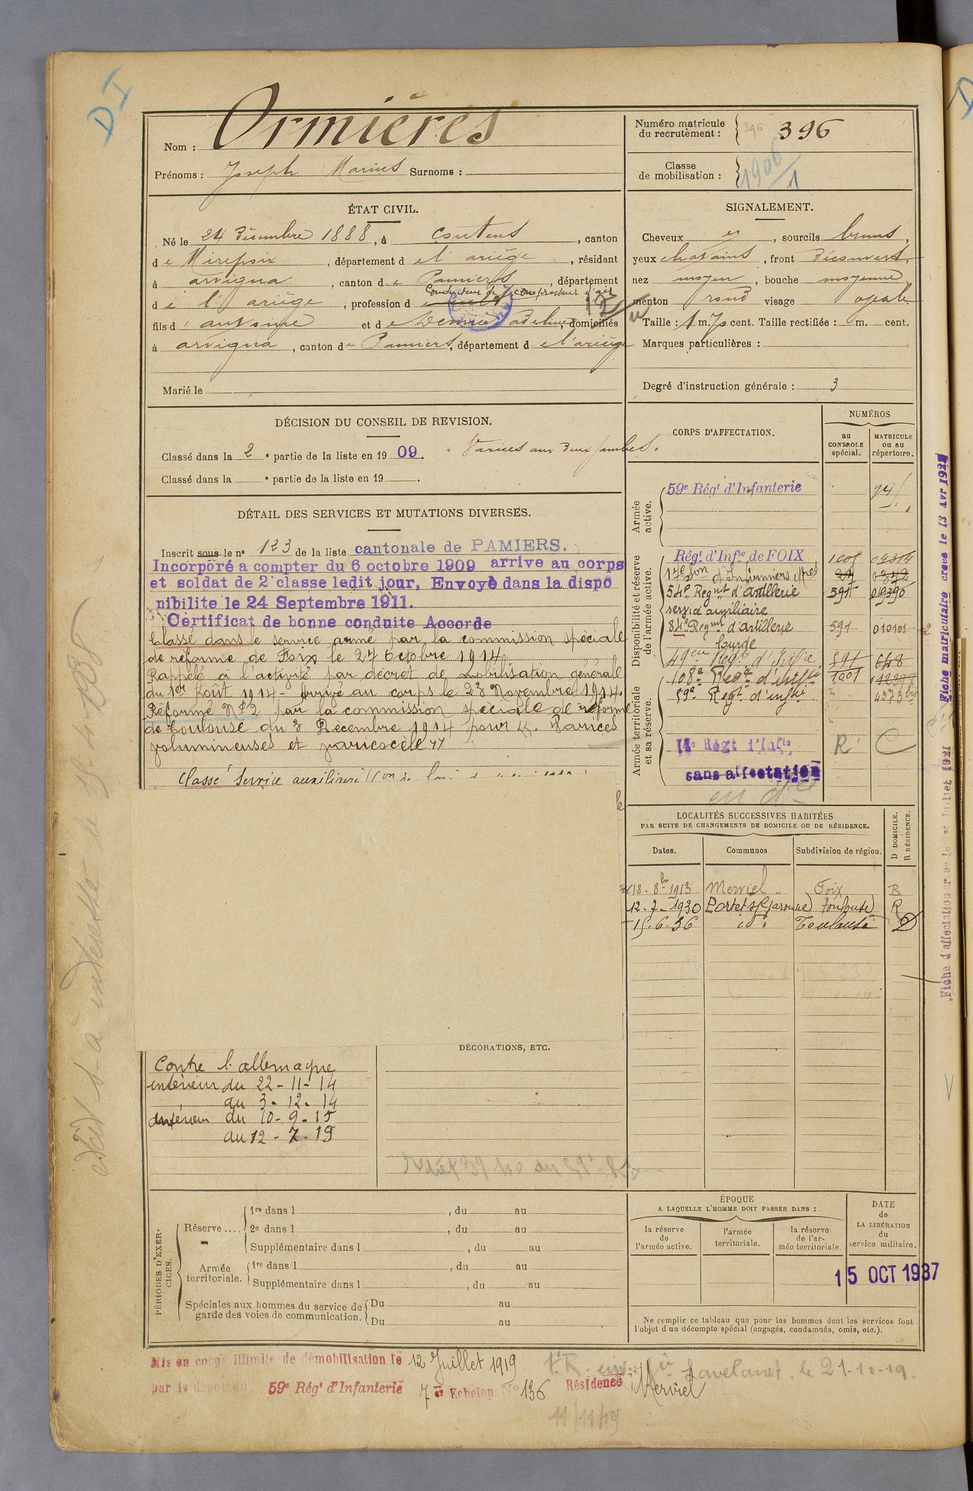 DI
Nom : Ormières
Prénoms : Joseph Marius Surnoms :
Numéro matricule du recrutement : 396 396
Classe de mobilisation : 1906/1
ÉTAT CIVIL.
Né le 24 Décembre 1888, à Coutens, canton
de Mirepoix, département de l'ariège, résidant
à arvigna, canton de Pamiers, département
de l'ariège, profession d
fils d'antoine et de domiciliés
à arvigna, canton de Pamiers, département de l'ariège
Marié le
SIGNALEMENT.
Cheveux et, sourcils bruns,
yeux chatains, front Découvert,
nez moyen, bouche moyenne
menton rond visage ovale
Taille : 1 m. 70 cent. Taille rectifiée : m. cent.
Marques particulières :
Degré d'instruction générale : 3
DÉCISION DU CONSEIL DE REVISION.
Classé dans la 2e partie de la liste en 1909. Varices aux deux jambes.
Classé dans la e partie de la liste en 19
DÉTAIL DES SERVICES ET MUTATIONS DIVERSES.
Inscrit sous le n° 123 de la liste cantonale de PAMIERS.
Incorporé a compter du 6 octobre 1909 arrive au corps
et soldat de 2e classe ledit jour, Envoyé dans la dispo
nibilite le 24 Septembre 1911.
Certificat de bonne conduite Accorde
Classé dans le service armé par la commission spéciale
de réforme de Foix le 27 Octobre 1914
Rappelé à l'activité par décret de mobilisation générale
du 1er Août 1914 - arrivé au corps le 23 Novembre 1914.
Réformé N°2 par la commission spéciale de réforme
de Toulouse du 3 Décembre 1914 pour Varices
volumineuses et varicocèle
Classé Service auxiliaire
CORPS D'AFFECTATION.
NUMÉROS
au CONTROLE spécial.
MATRICULE ou au répertoire.
Armée active.
59e Régt d'Infanterie
Disponibilité et réserve de l'armée active.
Régt d'Infie de FOIX
17e Son d'Infirmiers
54e Regmt d'artillerie 591
service auxiliaire
84e Regmt d'artillerie 591 010101
Lourde
Armée territoriale et sa réserve.
108e Regt d'Infie 1001
59e Regt d'infie
14e Régt d'Infie R C
sans affectation
LOCALITÉS SUCCESSIVES HABITÉES
PAR SUITE DE CHANGEMENTS DE DOMICILE OU DE RÉSIDENCE.
Dates. Communes Subdivision de région. D DOMICILE. R RÉSIDENCE.
18-8bre 1913 Merviel Foix R
12-7-1930 Portet s/Garonne Toulouse R
15-6-36 id° Toulouse D
Contre l'allemagne
intérieur du 22-11-14
au 3-12-14
intérieur du 10-9-15
au 12-7-19
DÉCORATIONS, ETC.
PÉRIODES D'EXERCICES.
Réserve ....
1re dans l , du au
2e dans l , du au
Supplémentaire dans l , du au
Armée territoriale.
1re dans l , du au
Supplémentaire dans l , du au
Spéciales aux hommes du service de garde des voies de communication.
Du au
Du au
ÉPOQUE
A LAQUELLE L'HOMME DOIT PASSER DANS :
la réserve de l'armée active.
l'armée territoriale.
la réserve de l'armée territoriale.
DATE de LA LIBÉRATION du service militaire.
15 OCT 1937
Ne remplir ce tableau que pour les hommes dont les services font
l'objet d'un décompte spécial (engagés, condamnés, omis, etc.).
Mis en congé illimité de démobilisation le 12 Juillet 1919
par le dépôt du 59e Régt d'Infanterie 7e Echelon N° 136 Résidence : Merviel
Lavelanet le 21-10-19.
11/11/19
Fiche matriculaire créée le 13 Avr 1921
Fiche d'affectation créée le Juillet 1921